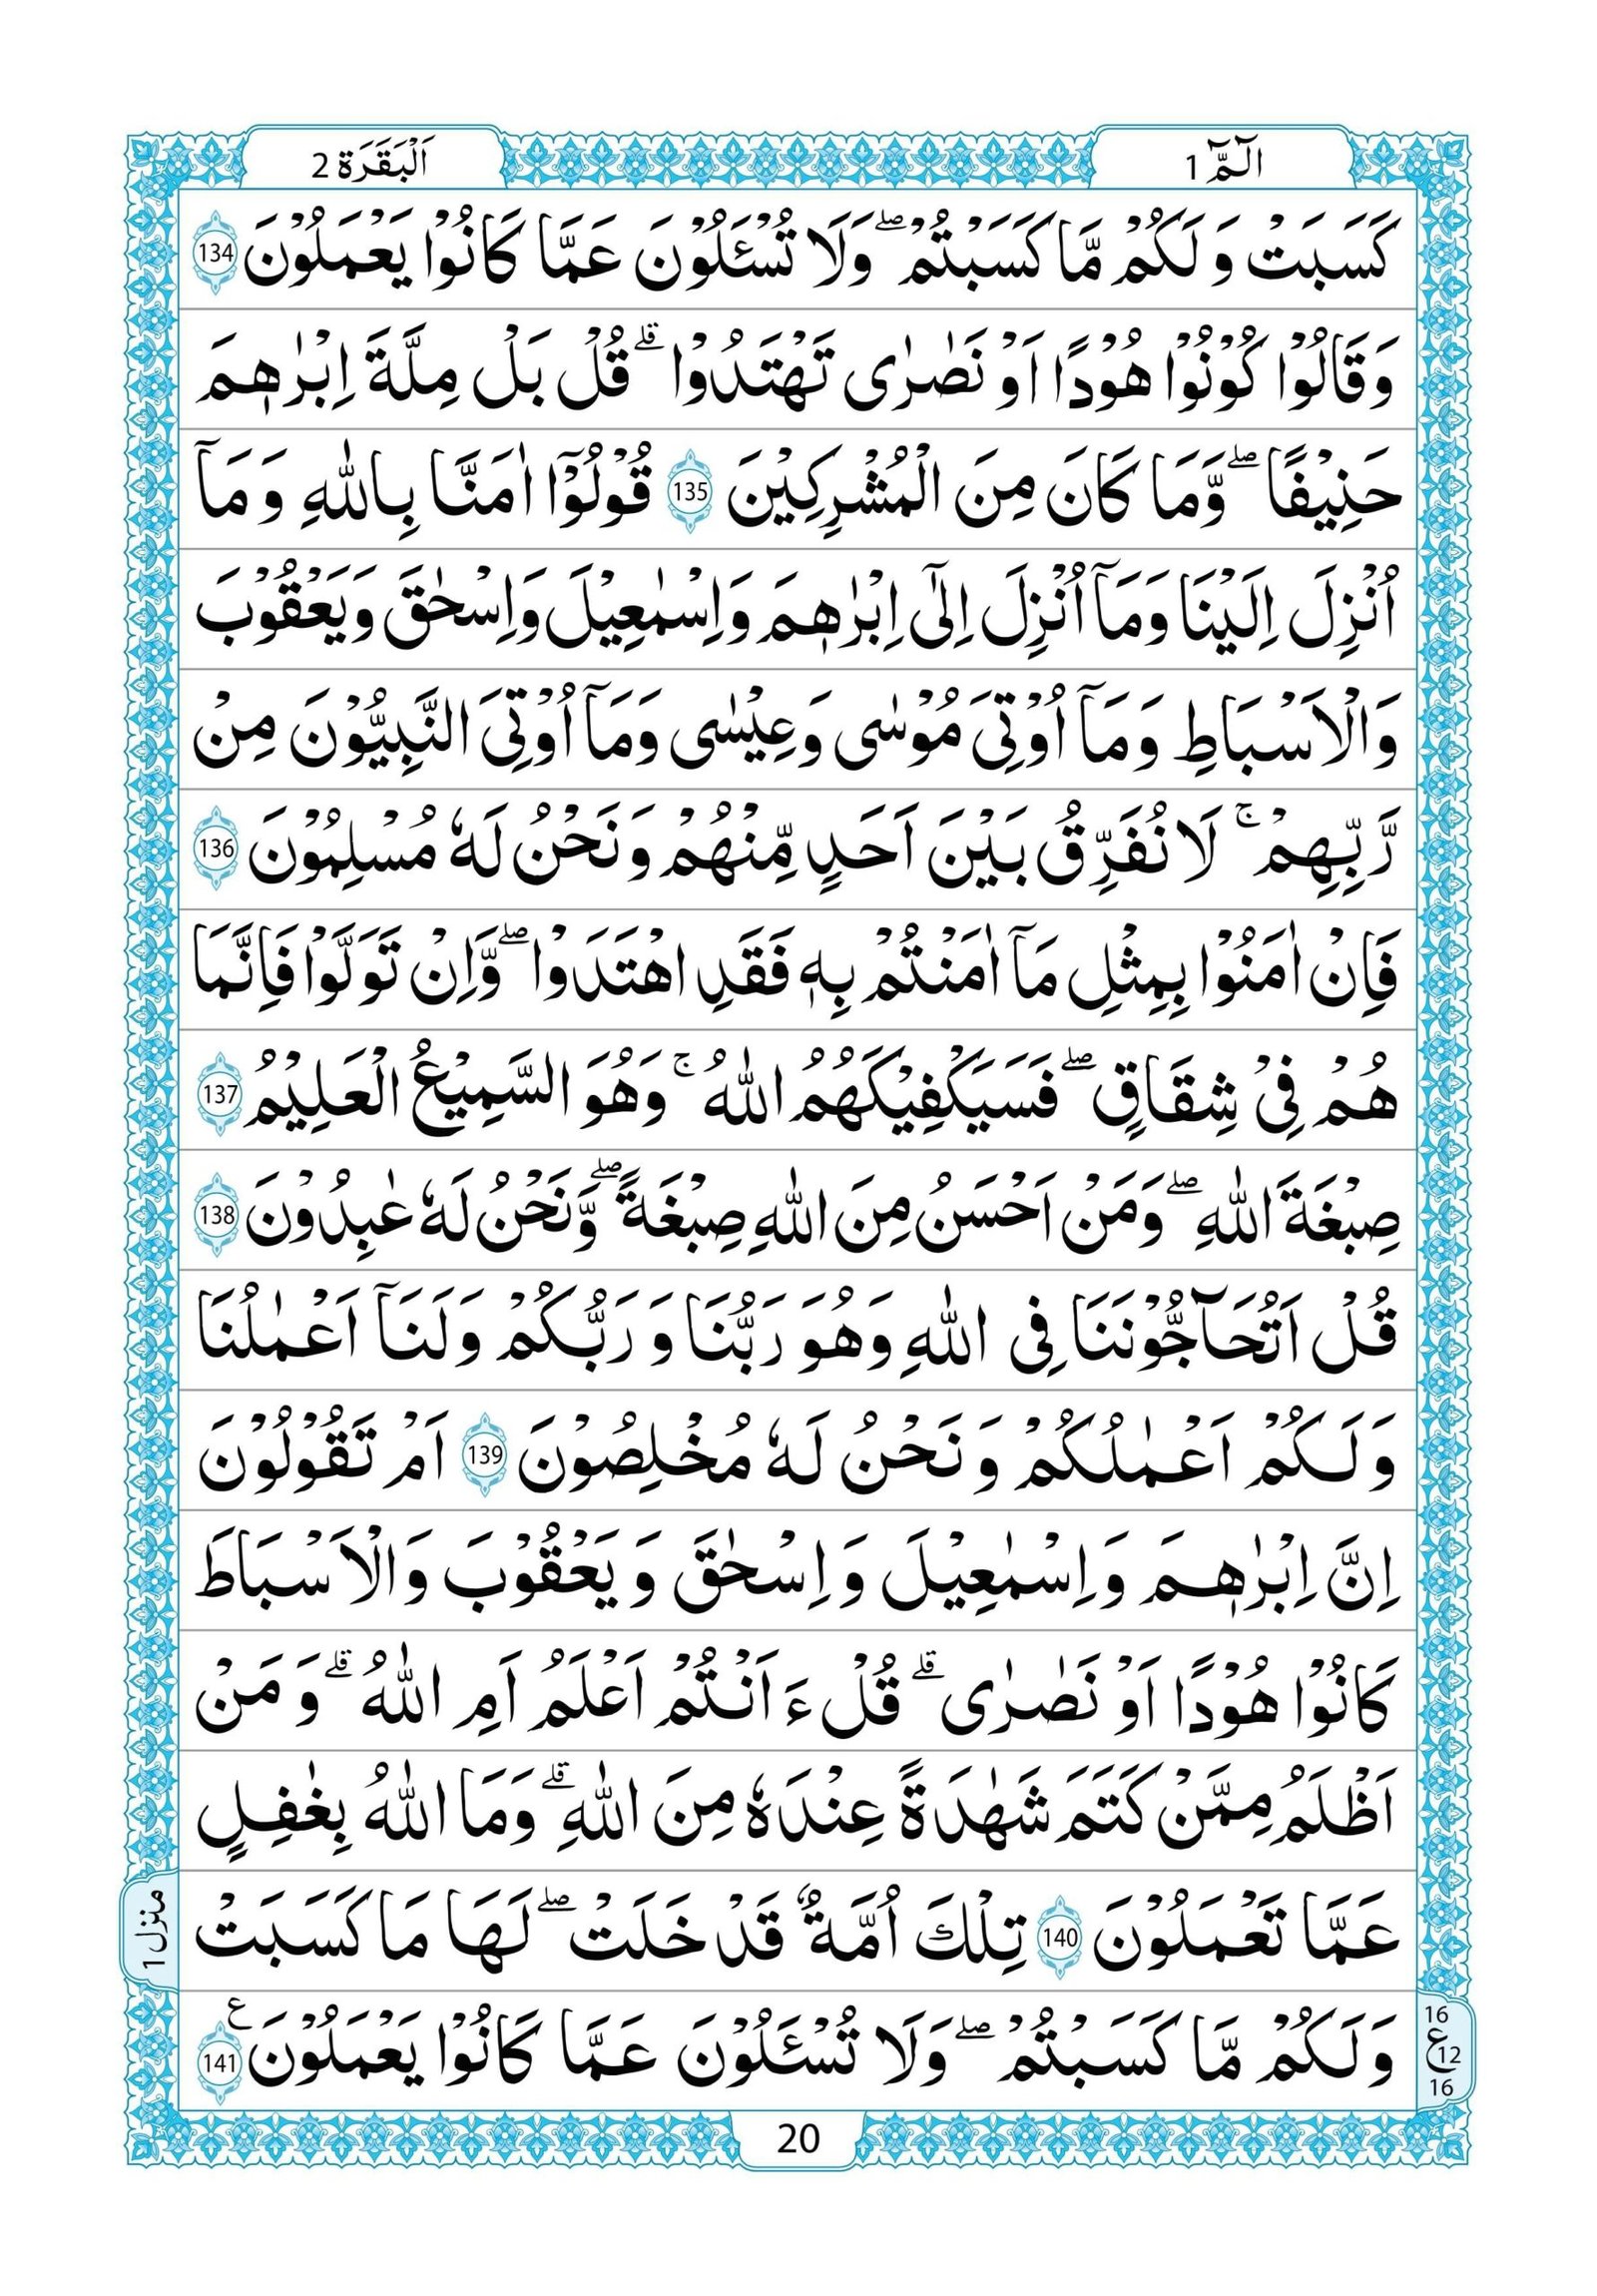 الٓمّٓ 1
اَلْبَقَرَة 2
كَسَبَتْ وَ لَكُمْ مَّا كَسَبْتُمْ ۖ وَلَا تُسْـَٔلُوْنَ عَمَّا كَانُوْا يَعْمَلُوْنَ 134
وَقَالُوْا كُوْنُوْا هُوْدًا اَوْ نَصٰرٰى تَهْتَدُوْا ۗ قُلْ بَلْ مِلَّةَ اِبْرٰهٖمَ
حَنِيْفًا ۖ وَّمَا كَانَ مِنَ الْمُشْرِكِيْنَ 135 قُوْلُوْٓا اٰمَنَّا بِاللّٰهِ وَ مَآ
اُنْزِلَ اِلَيْنَا وَمَآ اُنْزِلَ اِلٰٓى اِبْرٰهٖمَ وَاِسْمٰعِيْلَ وَاِسْحٰقَ وَيَعْقُوْبَ
وَالْاَسْبَاطِ وَمَآ اُوْتِيَ مُوْسٰى وَعِيْسٰى وَمَآ اُوْتِيَ النَّبِيُّوْنَ مِنْ
رَّبِّهِمْ ۚ لَا نُفَرِّقُ بَيْنَ اَحَدٍ مِّنْهُمْ وَنَحْنُ لَهٗ مُسْلِمُوْنَ 136
فَاِنْ اٰمَنُوْا بِمِثْلِ مَآ اٰمَنْتُمْ بِهٖ فَقَدِ اهْتَدَوْا ۖ وَّاِنْ تَوَلَّوْا فَاِنَّمَا
هُمْ فِيْ شِقَاقٍ ۖ فَسَيَكْفِيْكَهُمُ اللّٰهُ ۚ وَهُوَ السَّمِيْعُ الْعَلِيْمُ 137
صِبْغَةَ اللّٰهِ ۖ وَمَنْ اَحْسَنُ مِنَ اللّٰهِ صِبْغَةً ۖ وَّنَحْنُ لَهٗ عٰبِدُوْنَ 138
قُلْ اَتُحَآجُّوْنَنَا فِى اللّٰهِ وَهُوَ رَبُّنَا وَرَبُّكُمْ وَلَنَآ اَعْمٰلُنَا
وَلَكُمْ اَعْمٰلُكُمْ وَنَحْنُ لَهٗ مُخْلِصُوْنَ 139 اَمْ تَقُوْلُوْنَ
اِنَّ اِبْرٰهٖمَ وَاِسْمٰعِيْلَ وَاِسْحٰقَ وَيَعْقُوْبَ وَالْاَسْبَاطَ
كَانُوْا هُوْدًا اَوْ نَصٰرٰى ۗ قُلْ ءَاَنْتُمْ اَعْلَمُ اَمِ اللّٰهُ ۗ وَمَنْ
اَظْلَمُ مِمَّنْ كَتَمَ شَهٰدَةً عِنْدَهٗ مِنَ اللّٰهِ ۗ وَمَا اللّٰهُ بِغٰفِلٍ
عَمَّا تَعْمَلُوْنَ 140 تِلْكَ اُمَّةٌ قَدْ خَلَتْ ۖ لَهَا مَا كَسَبَتْ
وَلَكُمْ مَّا كَسَبْتُمْ ۖ وَلَا تُسْـَٔلُوْنَ عَمَّا كَانُوْا يَعْمَلُوْنَ ع 141
منزل 1
16
ع 12
16
20